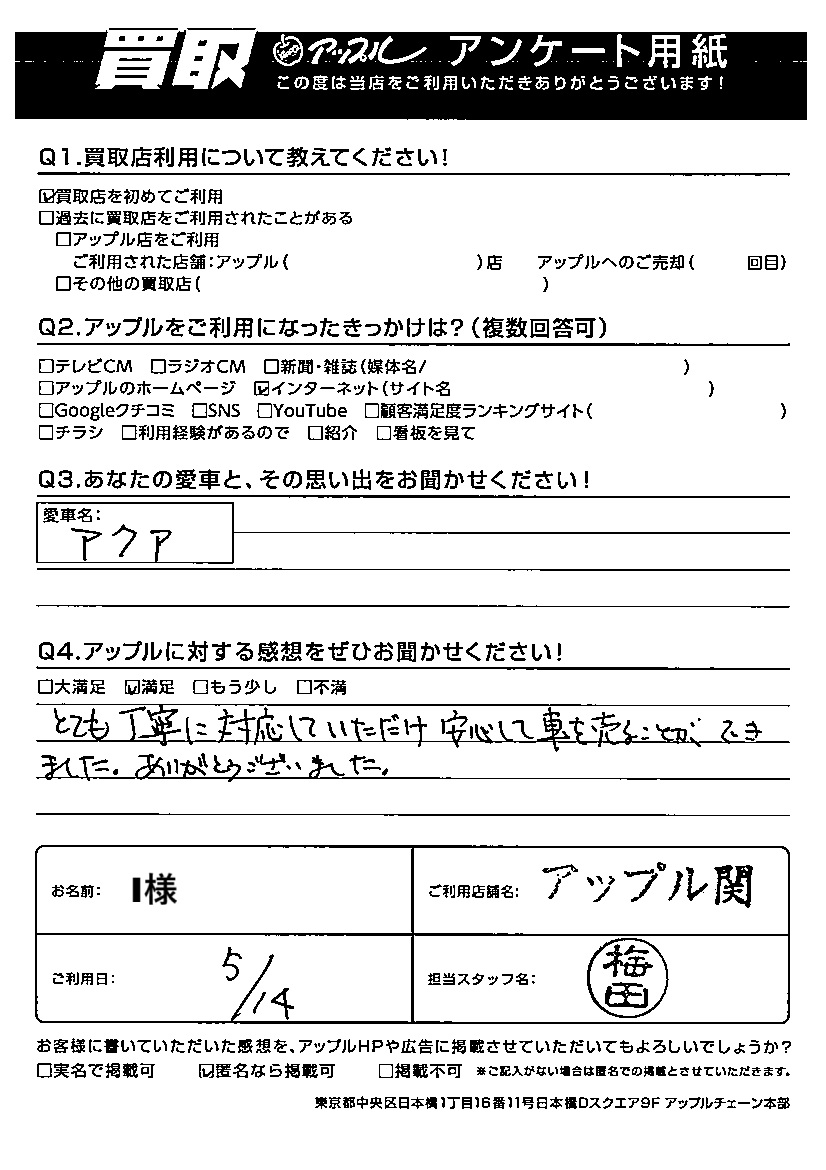 買取 アップル アンケート用紙
この度は当店をご利用いただきありがとうございます!
Q1.買取店利用について教えてください!
☑買取店を初めてご利用
□過去に買取店をご利用されたことがある
□アップル店をご利用
ご利用された店舗:アップル( )店 アップルへのご売却( 回目)
□その他の買取店( )
Q2.アップルをご利用になったきっかけは?(複数回答可)
□テレビCM □ラジオCM □新聞・雑誌(媒体名/ )
□アップルのホームページ ☑インターネット(サイト名 )
□Googleクチコミ □SNS □YouTube □顧客満足度ランキングサイト( )
□チラシ □利用経験があるので □紹介 □看板を見て
Q3.あなたの愛車と、その思い出をお聞かせください!
愛車名:
アクア
Q4.アップルに対する感想をぜひお聞かせください!
□大満足 ☑満足 □もう少し □不満
とても丁寧に対応していただけ安心して車を売ることが、でき
ました。ありがとうございました。
お名前: I様 ご利用店舗名: アップル関
ご利用日: 5/14 担当スタッフ名: 梅田
お客様に書いていただいた感想を、アップルHPや広告に掲載させていただいてもよろしいでしょうか?
□実名で掲載可 ☑匿名なら掲載可 □掲載不可 ※ご記入がない場合は匿名での掲載とさせていただきます。
東京都中央区日本橋1丁目16番11号日本橋Dスクエア9F アップルチェーン本部